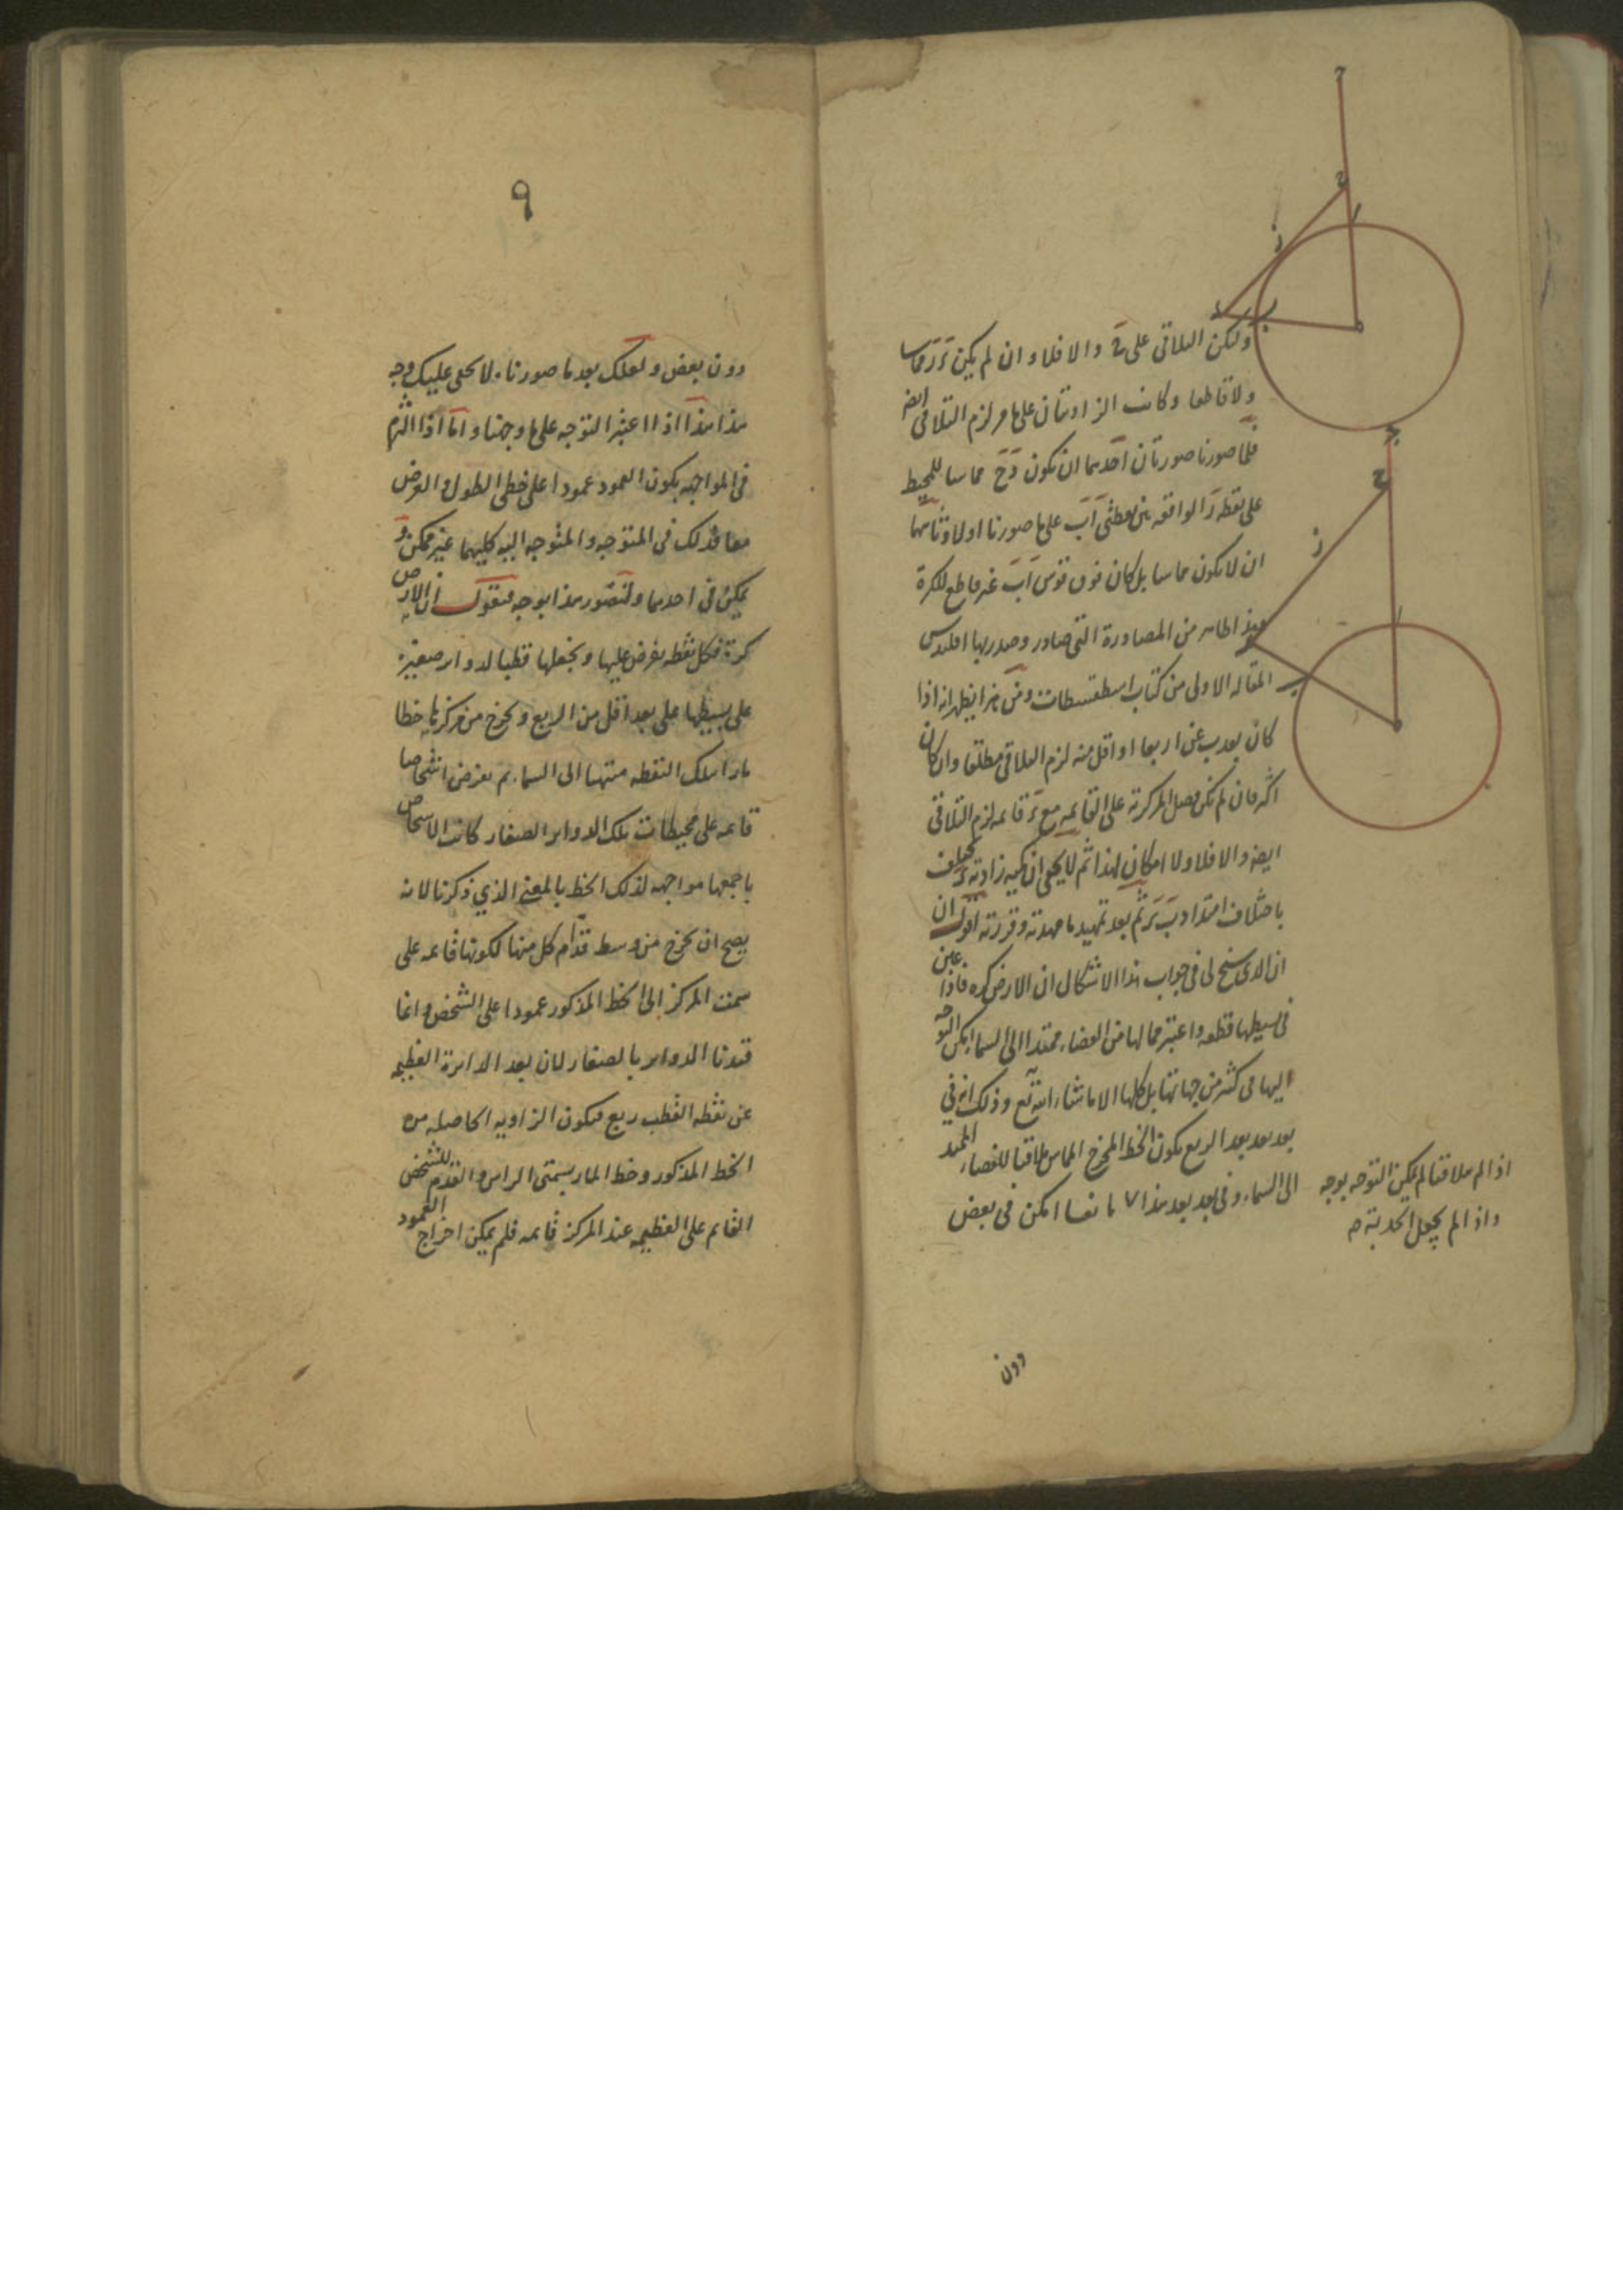 ولیكن التلاقی علی ح والا فلا و ان لم یكن
ولا قاطعا وكانت الزاویتان علی ما مر لزم التلاقی ایضا
فلها صورتا صورتان احدیهما ان تكون دح مماسا للمحیط
علی نقطة ر الواقعة بین نقطتی اب علی ما صورنا اولا وثانیهما
ان لا یكون مماسا بل كان فوق قوس اب غیر قاطع للكرة
وهذا ظاهر من المصادرة التی صادر وصدر بها اقلیدس
المقالة الاولی من كتاب اسطقسطات ومن هذا یظهر انه اذا
كان بعد ب عن ا ربعا او اقل منه لزم التلاقی مطلقا وان كان
اكثر فان لم یكن فضل المركزیة علی القائمة مع قائمة لزم التلاقی
ایضا والا فلا ولا امكان لهذا ثم لا یخفی ان كمیة زاویة تختلف
باختلاف امتداد ب ثم بعد تمهید ما مهدته وقررته اقول ان
ان الذی سنح لی فی جواب هذا الاشكال ان الارض كره فاذا عین
فی بسیطها قطعة واعتبر مما لها من الفضاء ممتدا الی السماء یمكن التوجه
الیها من كثیر من جهاتها بل كلها الا ما شاء الله تع وذلك انه فی
بعد بعد بعد الربع یكون الخط المخرج المماس ملاقیا للفضاء الممتد
الی السماء وفی بعد بعد هذا ٧ مانعا امكن فی بعض
اذا لم یلاقیا لم یكن التوجه بوجه
واذا لم یجعل الحدبة
دون
٩
دون بعض ولعلك بعد ما صورنا لا یخفی علیك وجه
هذا هذا اذا اعتبر التوجه علی ما وجهنا واما اذا التزم
فی المواجهة بكون العمود عمودا علی خطی الطول والعرض
معا فذلك فی المتوجه والمتوجه الیه كلیهما غیر ممكن و
یمكن فی احدیهما ولنصور هذا بوجه فنقول ان الارض
كرة فكل نقطة نفرض علیها ونجعلها قطبا لدوایر صغیرة
علی بسیطها علی بعد اقل من الربع ونخرج من مركزها خطا
مارا بتلك النقطة منتهیا الی السماء ثم نفرض اشخاصا
قائمة علی محیطات تلك الدوایر الصغار كانت الاشخاص
باجمعها مواجهة لذلك الخط بالمعنی الذی ذكرنا لانه
یصح ان یخرج من وسط قدام كل منها لكونها قائمة علی
سمت المركز الی الخط المذكور عمودا علی الشخص وانما
قیدنا الدوایر بالصغار لان بعد الدایرة العظیمة
عن نقطة القطب ربع فیكون الزاویة الحاصلة من
الخط المذكور وخط المار بسمتی الراس والقدم للشخص
القائم علی العظیمة عند المركز قائمة فلم یمكن اخراج العمود